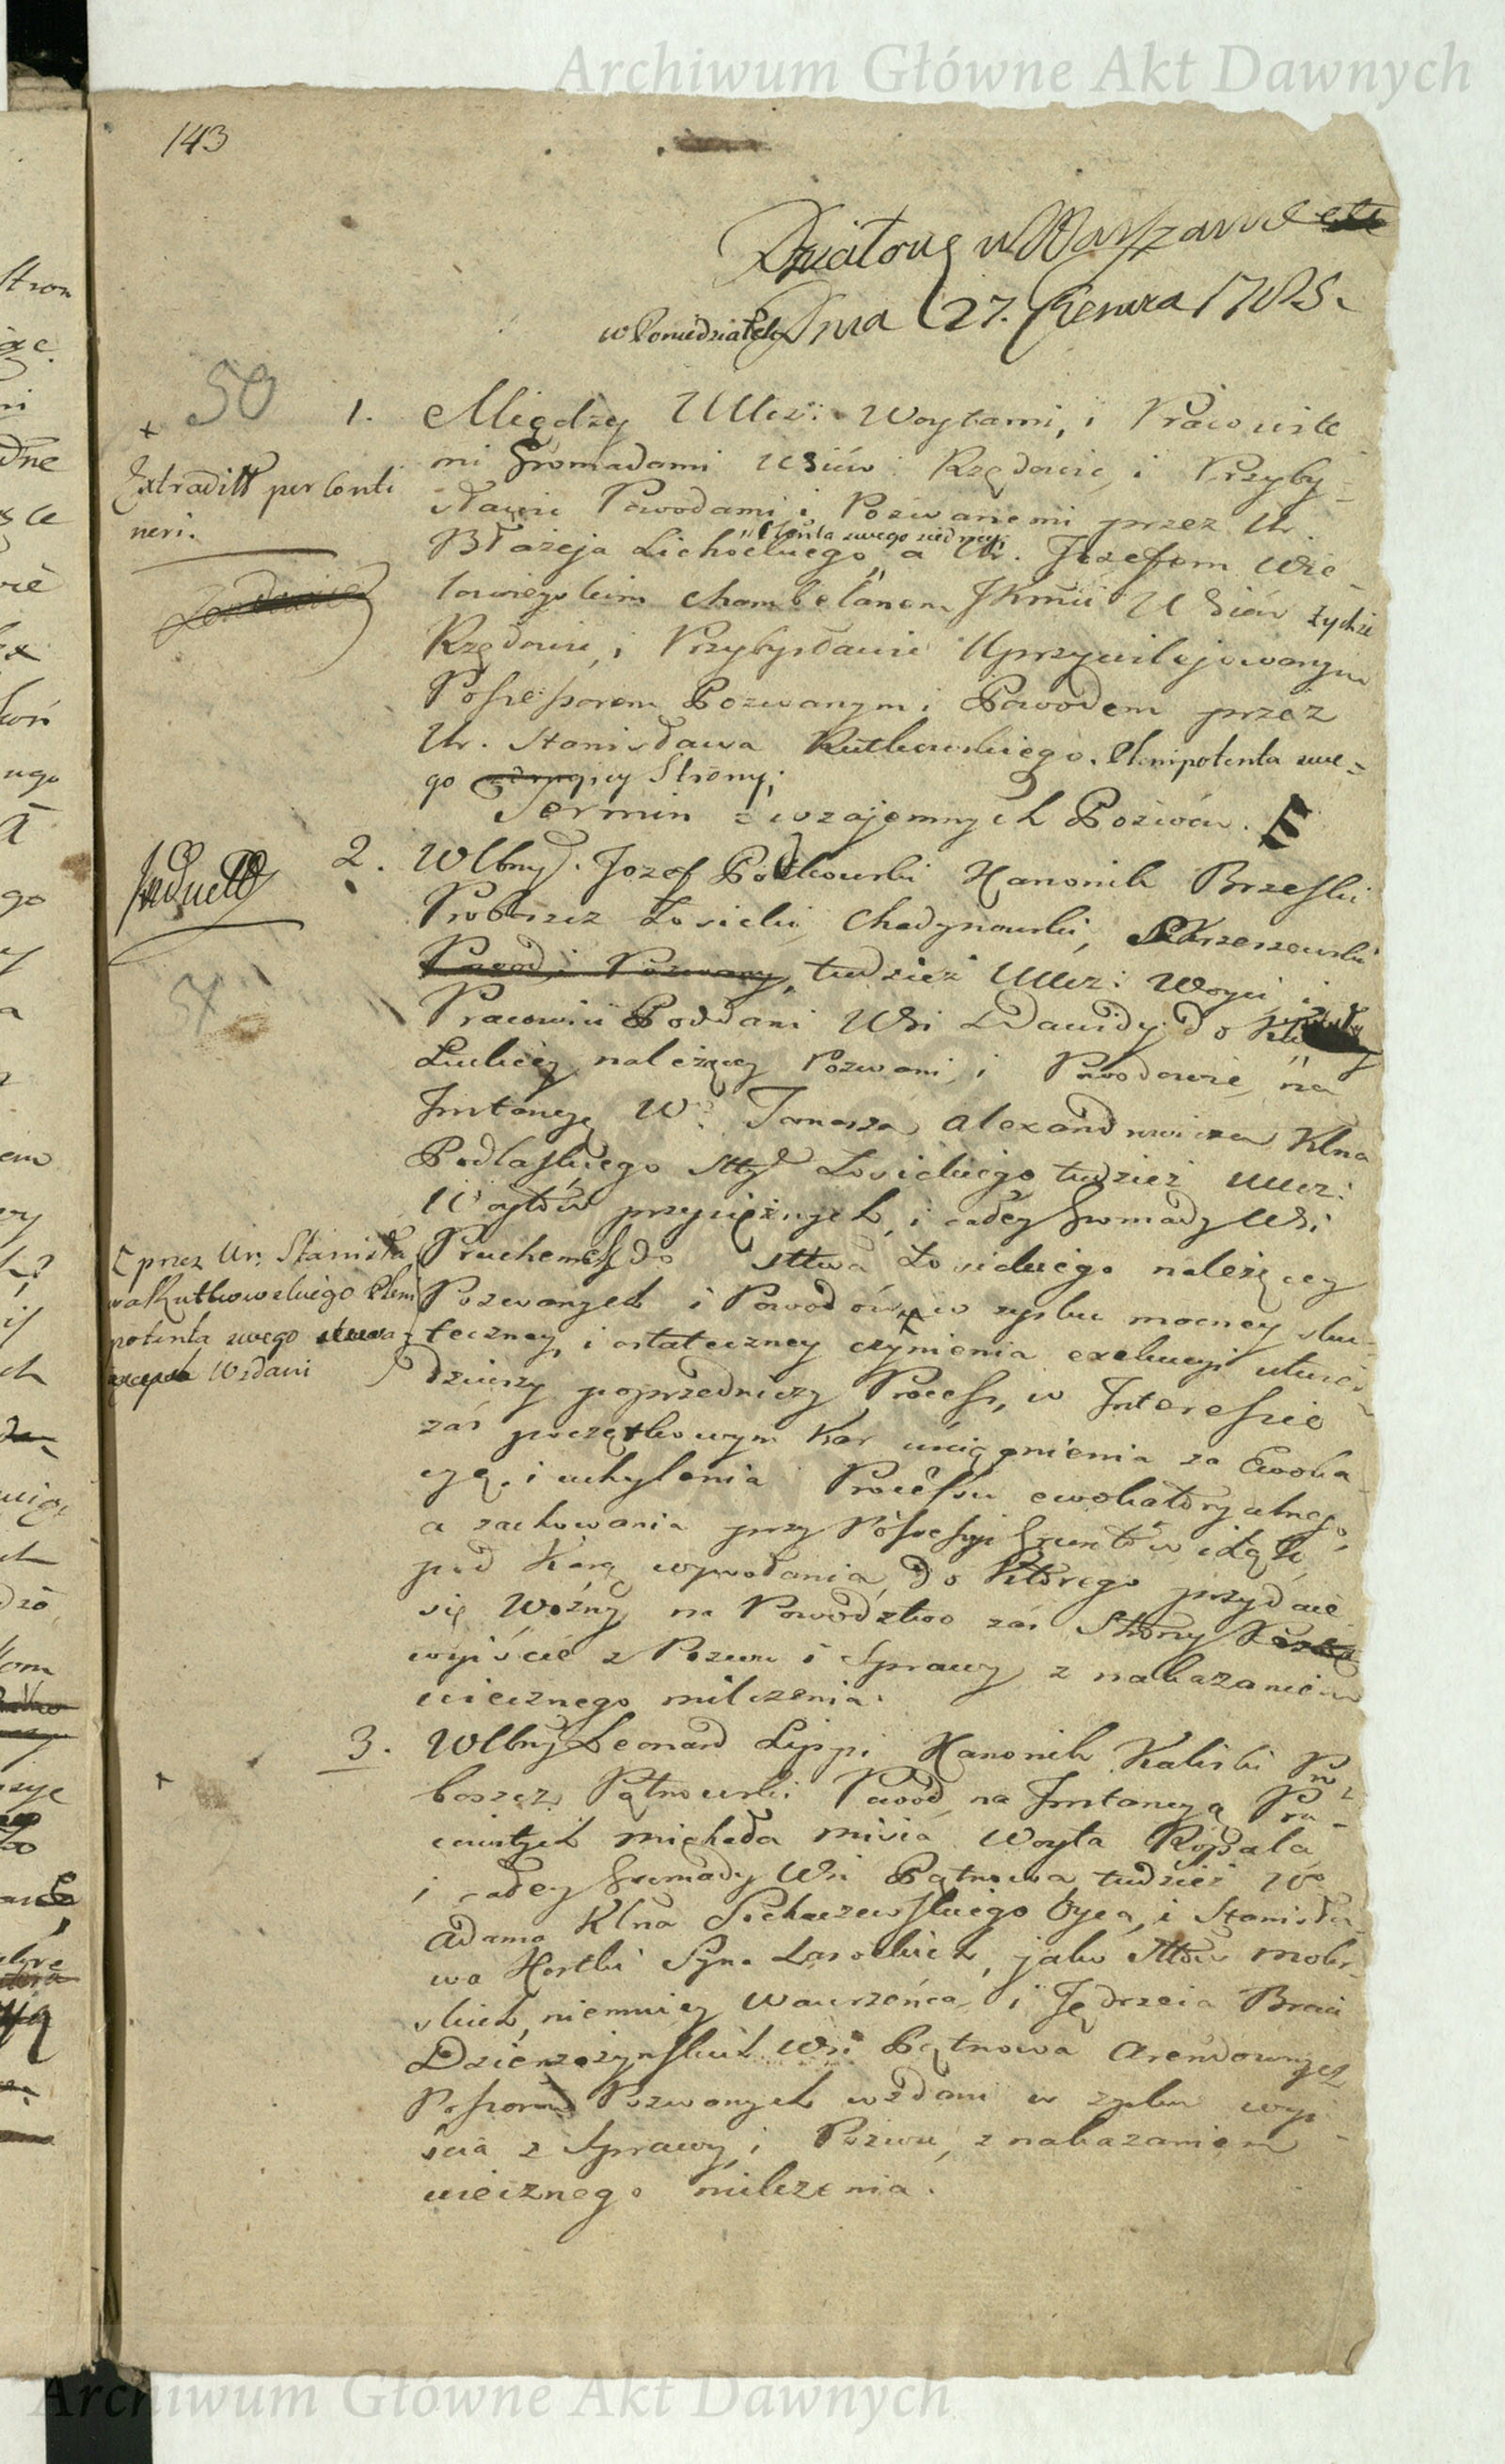 Archiwum Główne Akt Dawnych
143
Działo się w Warszawie
w Poniedziałek Dnia 27. Czerwca 1785.
50
1. Między Ucz: Woytami, i Pracowite
mi Gromadami Wsiów Rzędowie, i Przyby
sławic Powodami i Pozwanemi przez Ur.
Plenipotenta swego
Błażeja Lichockiego a Ur. Jozefem Wie
lowieyskim Chambelanem JKmci Wsiów
Rzędowic, i Przybysławic Uprzywilejowanym
Possessorem Pozwanym i Powodem przez
Ur. Stanisława Rutkowskiego. Plenipotenta swe=
go Strony;
Termin z wzajemnych Pozwów.
Extraditt per conti
neri.
2. Wlbny J. Jozef Kanonik Brzeski
Proboszcz Łosicki, Chadynowski,
Powod i Pozwany, tudzież Ucz: Woyci, i
Pracowici Poddani Wsi Dawidy do
należącey Pozwani, i Powodowie, na
Instancyę W. Tomasza Alexandrowicza Klna
Podlaskiego Stty Łosickiego tudzież Ucz:
Woytów przysiężnych, i całey Gromady Wsi
Pruchenek do Sttwa Łosickiego należącey
Pozwanych i Powodów w zysku mocney sku=
teczney, i ostateczney czynienia exekucyi utwier
dzaiący poprzedniczy Process, w Interessie
zaś początkowym Kar wciągnienia za Ewoka
cyę, i uchylenia Processu ewokatoryalnego,
a zachowania przy Possessyi Gruntów i Łąk
pod Karą wywołania, do Którego przydaie
się Woźny na Powodztwo zaś Strony
wyiście z Pozwu i Sprawy z nakazaniem
wiecznego milczenia.
[ przez Ur. Stanisła
wa Rutkowskiego Pleni
potenta swego
Wzdani
3. Wlbny Leonard Lippi Kanonik Kaliski Pro=
boszcz Pątnowski Powód na Instancyą Pra=
cowitych Michała Misia Woyta
i całey Gromady Wsi Pątnowa, tudzież W
Adama Klna Sochaczewskiego Oyca, i Stanisła=
wa Kostki Syna Lasockich, jako Sttów Mokr=
skich, niemniey Wawrzeńca, i Jędrzeia Braci
Wsi Pątnowa Arendownych
Possorów Pozwanych wzdani w zysku wyi=
ścia z Sprawy, i Pozwu, z nakazaniem
wiecznego milczenia.
Archiwum Główne Akt Dawnych